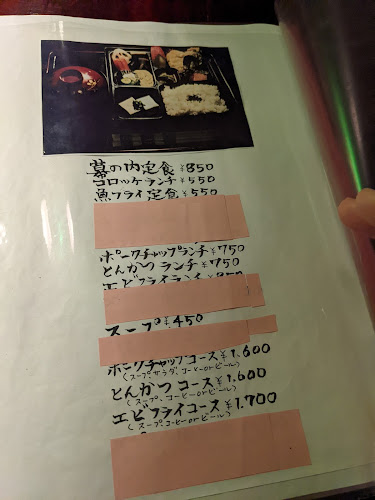 幕の内定食 ¥850
コロッケランチ ¥550
魚フライ定食 ¥550
ポークチャップランチ ¥750
とんかつ ランチ ¥750
エビフライランチ ¥850
スープ ¥450
ポークチャップコース ¥1.600
(スープ、サラダ、コーヒーorビール)
とんかつコース ¥1.600
(スープ、コーヒーorビール)
エビフライコース ¥1.700
(スープ、コーヒーorビール)